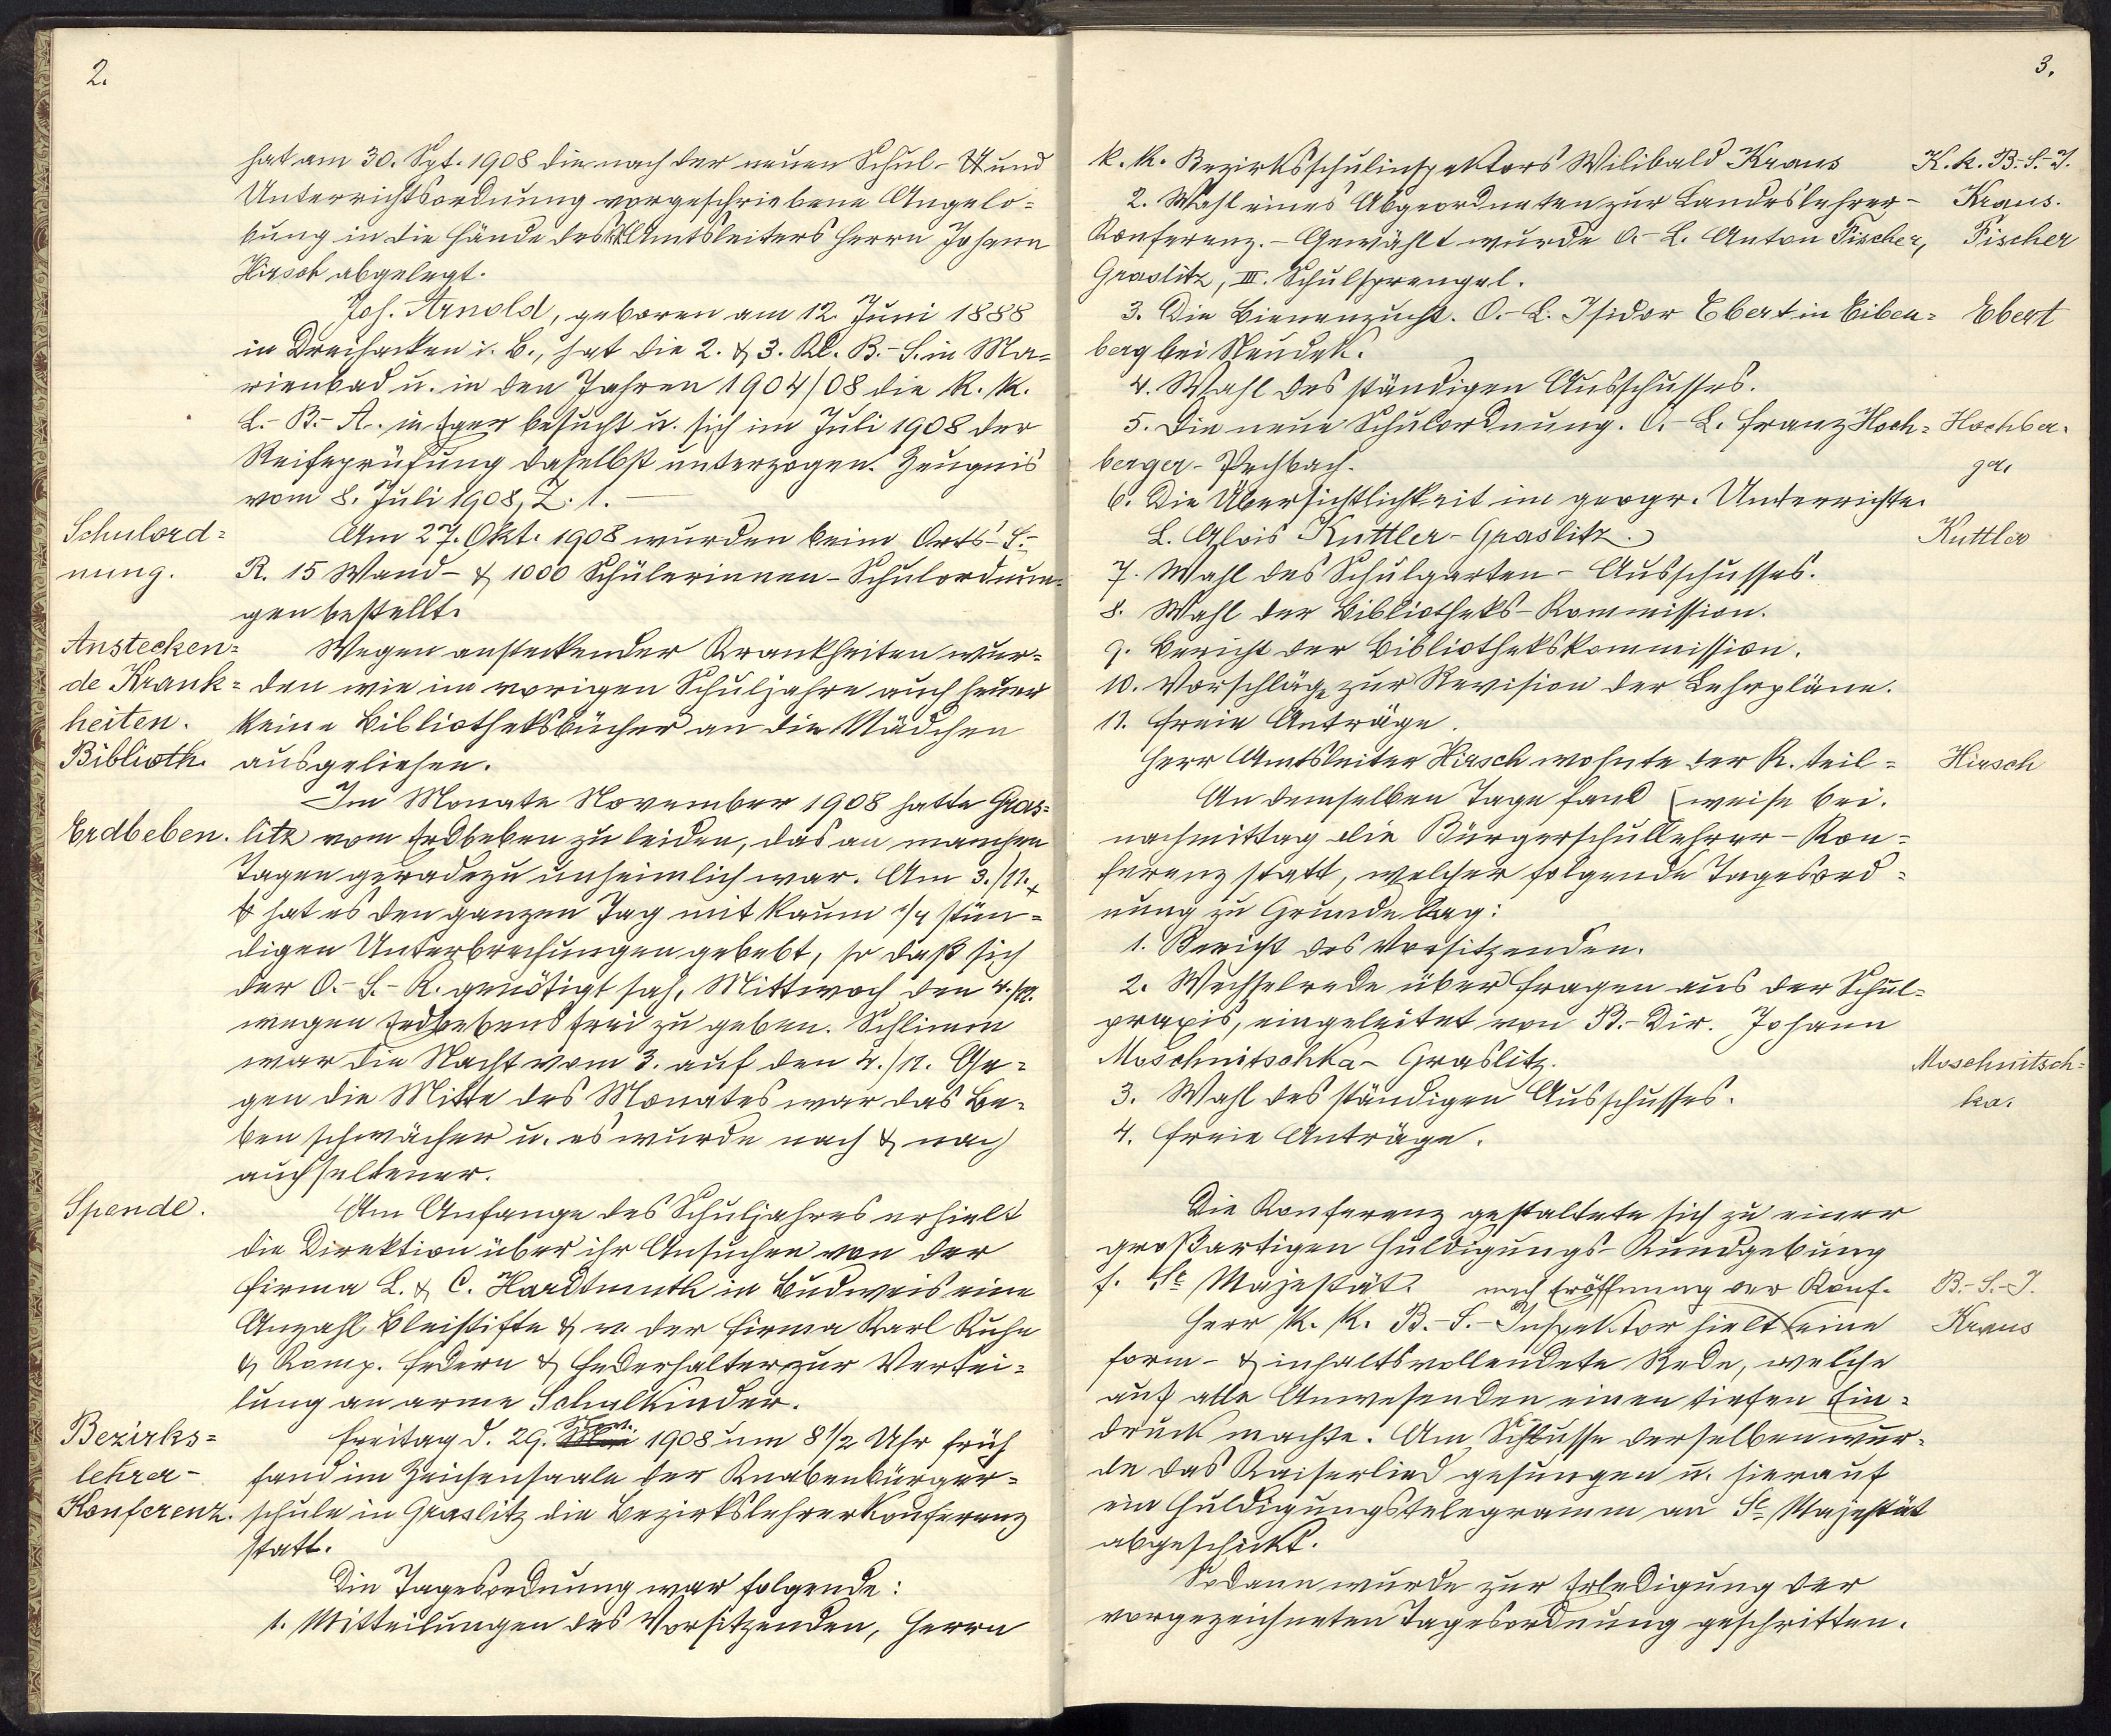 2.
hat am 30. Spt. 1908 die nach der neuen Schul- und
Unterrichtsordnung vorgeschriebene Angelo=
bung in die Hände des Amtsleiters Herrn Johann
Hirsch abgelegt.
Joh. Arnold, geboren am 12. Juni 1888
in Dreihacken i. B., hat die 2. & 3. Kl. B.-S. in Ma=
rienbad u. in den Jahren 1904/08 die k. k.
L.-B.-A. in Eger besucht u. sich im Juli 1908 der
Reifeprüfung daselbst unterzogen. Zeugnis
vom 8. Juli 1908, Z. 1. —
Schulord=
nung.
Am 27. Okt. 1908 wurden beim Orts-S.-
R. 15 Wand- & 1000 Schülerinnen-Schulordnun=
gen bestellt.
Anstecken=
de Krank=
heiten.
Biblioth.
Wegen ansteckender Krankheiten wur=
den wie im vorigen Schuljahre auch heuer
keine Bibliotheksbücher an die Mädchen
ausgeliehen.
Im Monate November 1908 hatte Gras=
Erdbeben. litz vom Erdbeben zu leiden, das an manchen
Tagen geradezu unheimlich war. Am 3./11.
hat es den ganzen Tag mit kaum 1/4 stün=
digen Unterbrechungen gebebt, so daß sich
der O.-S.-R. genötigt sah, Mittwoch den 4./11.
wegen Erdbebens frei zu geben. Schlimm
war die Nacht vom 3. auf den 4./11. Ge=
gen die Mitte des Monates war das Be=
ben schwächer u. es wurde nach & nach
auch seltener.
Spende.
Am Anfange des Schuljahres erhielt
die Direktion über ihr Ansuchen von der
Firma L. & C. Hardtmuth in Budweis eine
Anzahl Bleistifte & v. der Firma Karl Kuhn
& Komp. Federn & Federhalter zur Vertei=
lung an arme Schulkinder.
Bezirks=
lehrer-
Konferenz.
Freitag d. 29. Mai 1908 um 8 1/2 Uhr früh
fand im Zeichensaale der Knabenbürger=
schule in Graslitz die Bezirkslehrerkonferenz
statt.
Die Tagesordnung war folgende:
1. Mitteilungen des Vorsitzenden, Herrn
3.
k. k. Bezirksschulinspektors Wilibald Kraus
K. k. B.-S.-I.
Kraus.
2. Wahl eines Abgeordneten zur Landeslehrer-
Konferenz. - Gewählt wurde O.-L. Anton Fischer,
Fischer
Graslitz, III. Schulsprengel.
3. Die Bienenzucht. O.-L. Isidor Ebert in Eiben=
Ebert
berg bei Neudek.
4. Wahl des ständigen Ausschusses.
5. Die neue Schulordnung. O.-L. Franz Hoch=
berger-Pechbach.
Hochber=
ger.
6. Die Übersichtlichkeit im geogr. Unterrichte.
L. Alois Kuttler-Graslitz.
Kuttler
7. Wahl des Schulgarten-Ausschusses.
8. Wahl der Bibliotheks-Kommission.
9. Bericht der Bibliothekskommission.
10. Vorschläge zur Revision der Lehrpläne.
11. Freie Anträge.
Herr Amtsleiter Hirsch wohnte der K. teil=
Hirsch
An demselben Tage fand [weise bei.
nachmittag die Bürgerschullehrer-Kon=
ferenz statt, welcher folgende Tagesord=
nung zu Grunde lag:
1. Bericht des Vorsitzenden.
2. Wechselrede über Fragen aus der Schul=
praxis, eingeleitet von B.-Dir. Johann
Moschnitschka-Graslitz.
Moschnitsch=
ka.
3. Wahl des ständigen Ausschusses.
4. Freie Anträge.
Die Konferenz gestaltete sich zu einer
großartigen Huldigungs-Kundgebung
f. Se Majestät.
nach Eröffnung der Konf.
Herr k. k. B.-S.-Inspektor hielt eine
B.-S.-I.
Kraus
form- & inhaltsvollendete Rede, welche
auf alle Anwesenden einen tiefen Ein=
druck machte. Am Schlusse derselben wur=
de das Kaiserlied gesungen u. hierauf
ein Huldigungstelegramm an Se Majestät
abgeschickt.
Sodann wurde zur Erledigung der
vorgezeichneten Tagesordnung geschritten.